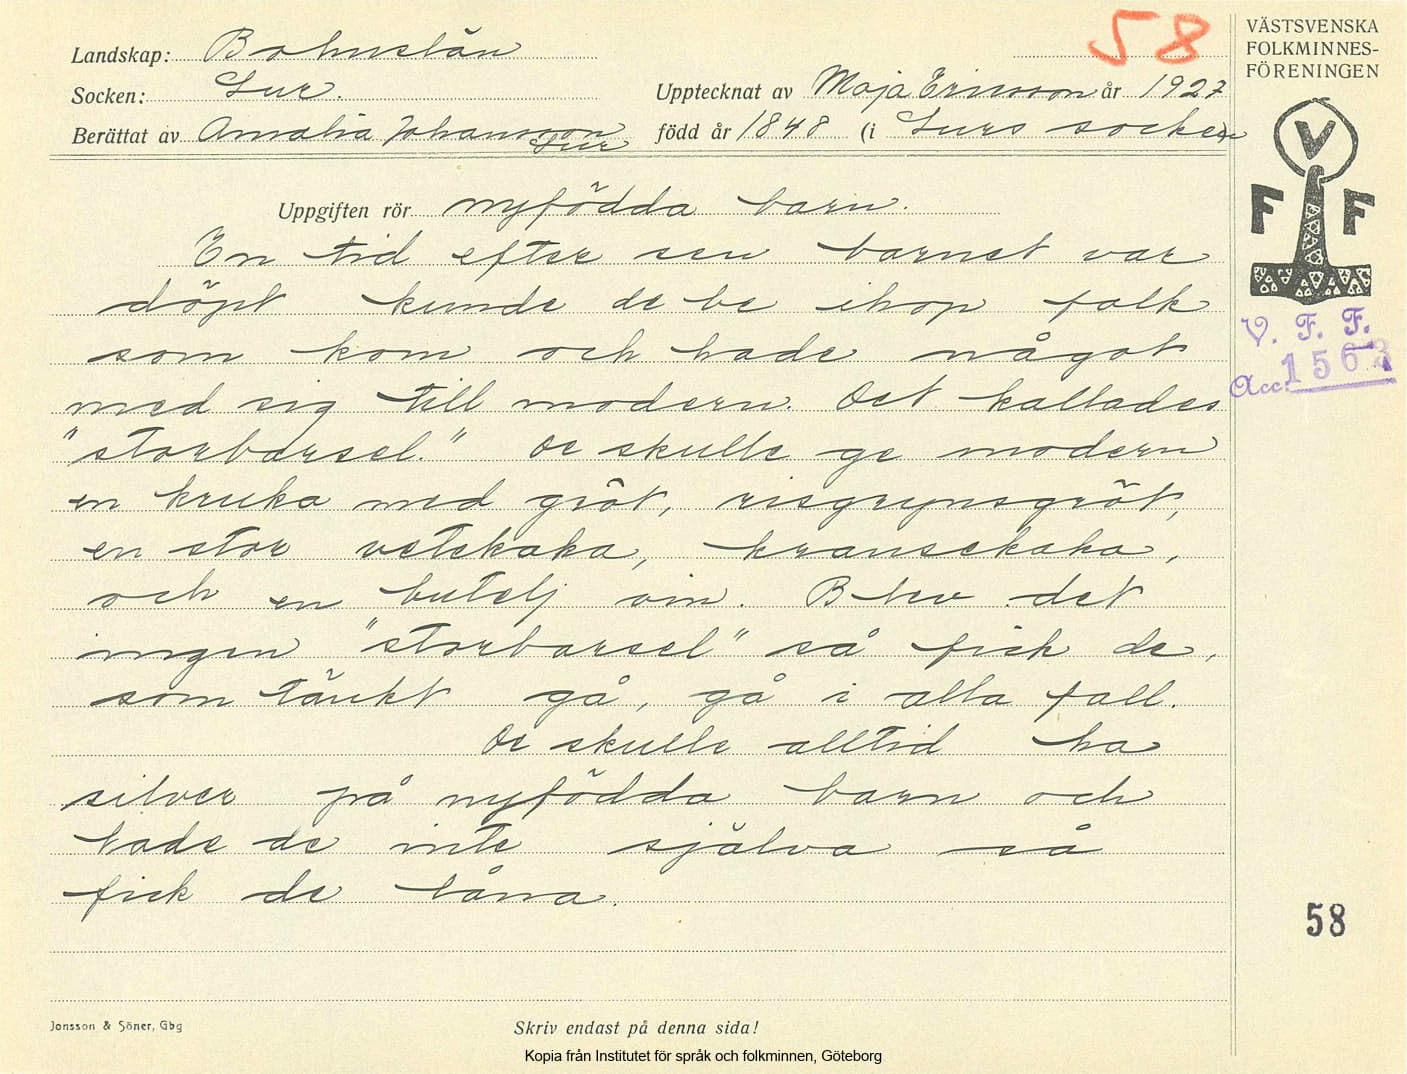 58
VÄSTSVENSKA
FOLKMINNES-
FÖRENINGEN
Landskap: Bohuslän
Socken: Lur.
Upptecknat av Maja Ericsson år 1927
Berättat av Amalia Johansson
Lur
född år 1848 (i Lurs socken
V
F F
V. F. F.
Acc: 1563
Uppgiften rör nyfödda barn.
En tid efter sen barnet var
döpt kunde de be ihop folk
som kom och hade något
med sig till modern. Det kallades
"storbarsel." De skulle ge modern
en kruka med gröt, risgrynsgröt,
en stor vetekaka, kransekaka,
och en butelj vin. Blev det
ingen "storbarsel" så fick de,
som tänkt gå, gå i alla fall.
De skulle alltid ha
silver på nyfödda barn och
hade de inte själva så
fick de låna.
58
Jonsson & Söner, Gbg
Skriv endast på denna sida!
Kopia från Institutet för språk och folkminnen, Göteborg